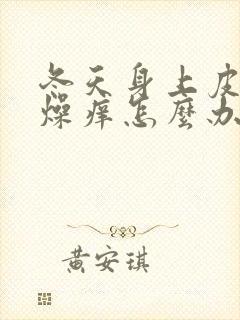 冬天身上皮
燥痒怎麼办
黄安琪